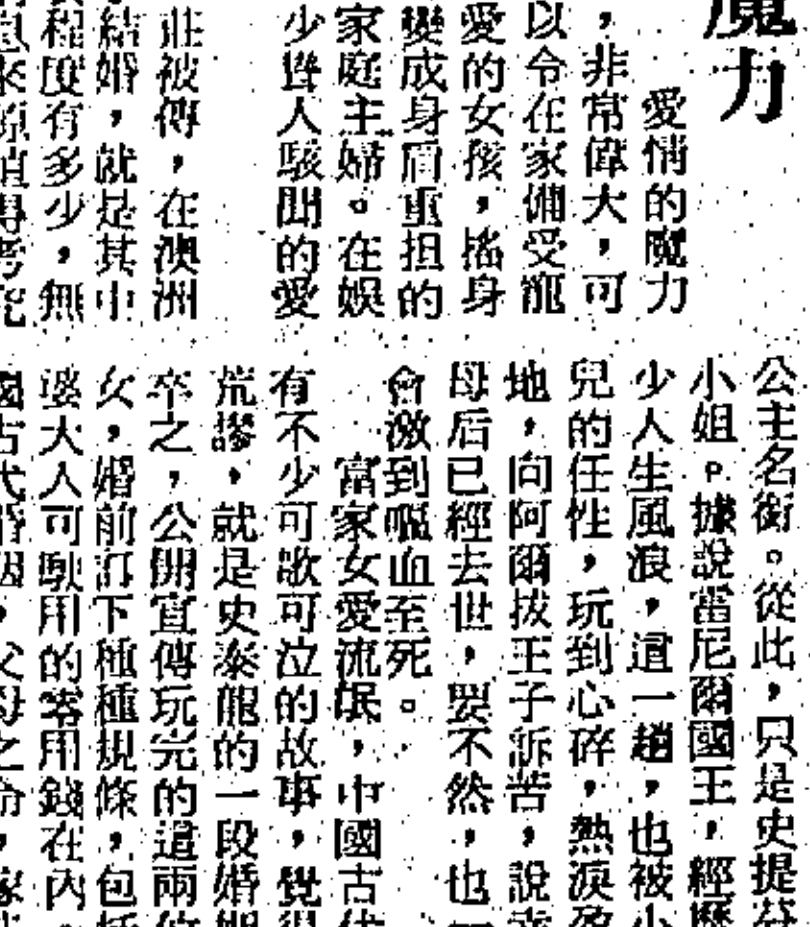 魔力
愛情的魔力
，非常偉大，可
以令在家備受寵
愛的女孩，搖身
變成身肩重担的
家庭主婦。在娛
少聳人駭聞的愛
莊被傳，在澳洲
結婚，就是其中
程度有多少，無
公主名銜。從此，只是史提芬
小姐。據說當尼爾國王，經歷
少人生風浪，這一趟，也被小
兒的任性，玩到心碎，熱淚盈
地，向阿爾拔王子訴苦，說幸
母后已經去世，要不然，也一
會激到嘔血至死。
富家女愛流氓，中國古代
有不少可歌可泣的故事，覺得
荒謬，就是史泰龍的一段婚姻
卒之，公開宣傳玩完的這兩位
女，婚前訂下種種規條，包括
婆大人可駛用的零用錢在內。
國古代婚姻，父母之命，